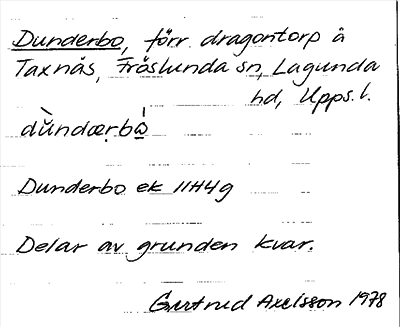 Dunderbo, förr dragontorp å
Taxnäs, Fröslunda sn, Lagunda
hd, Upps. l.
dùndærbó
Dunderbo ek 11H4g
Delar av grunden kvar.
Gertrud Axelsson 1978